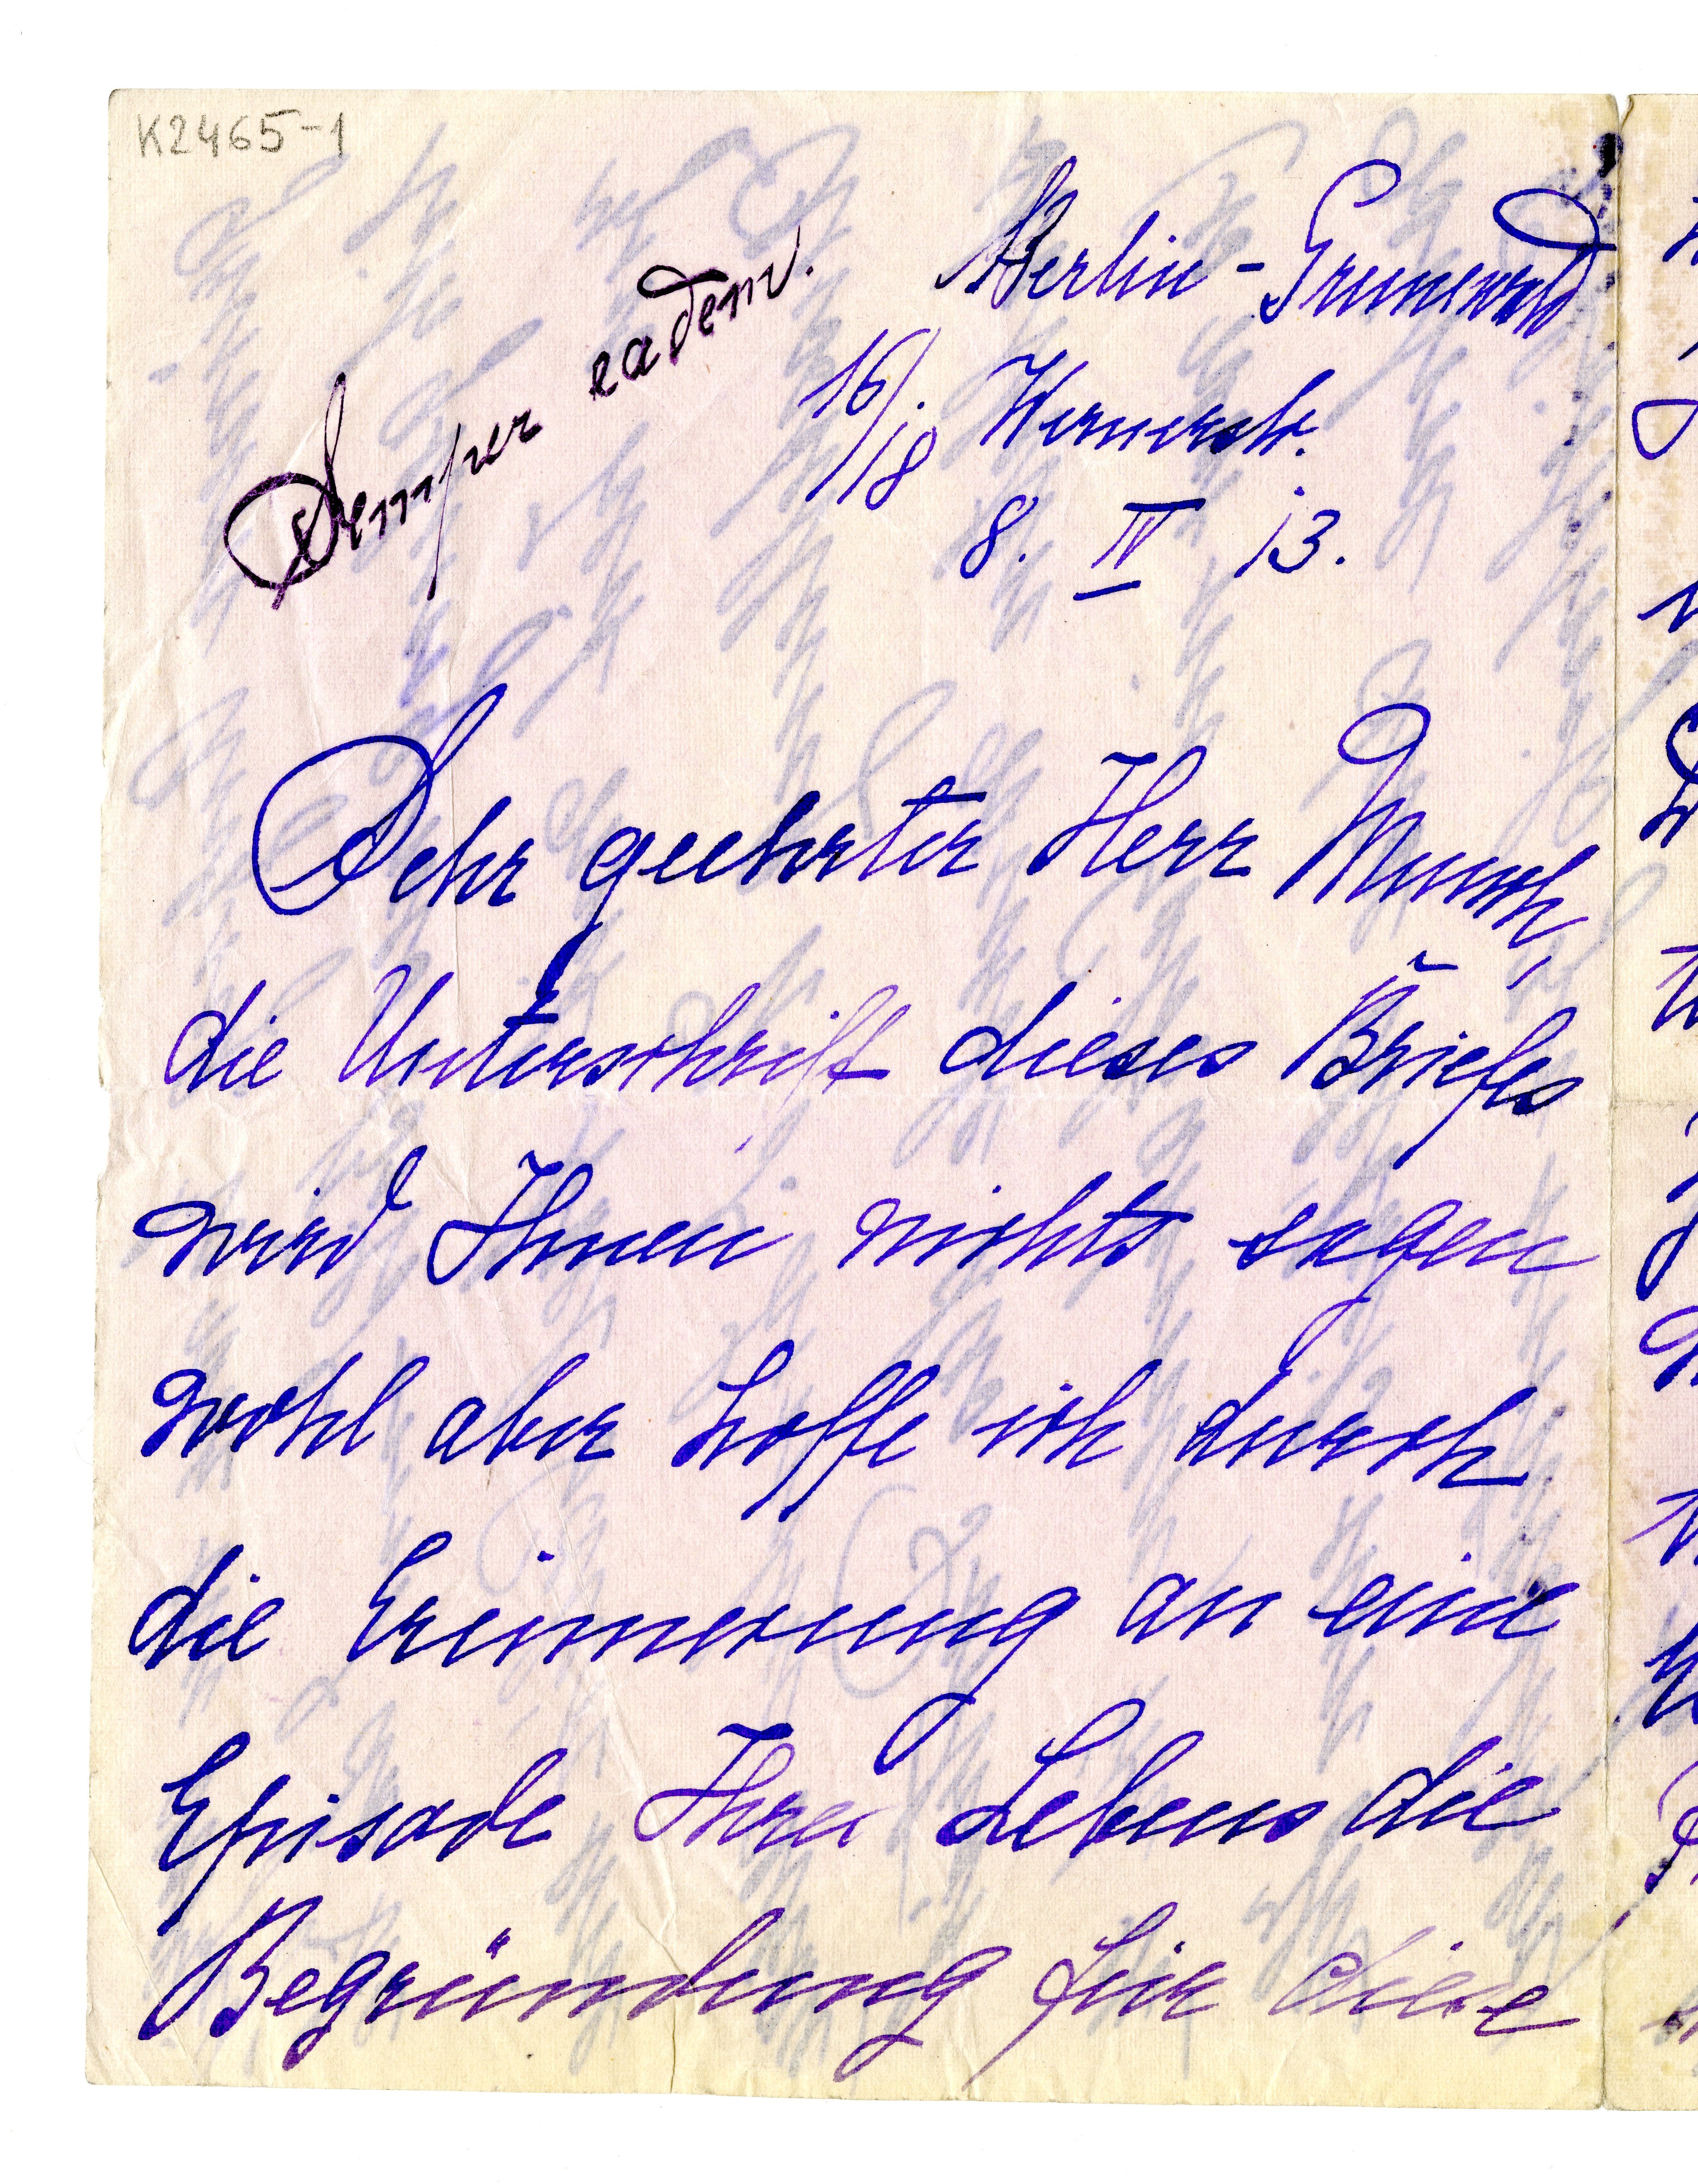 K2465-1
Semper eadem.
Berlin-Grunewald
16/18 Wernerstr.
8. IV 13.
Sehr geehrter Herr Munch,
die Unterschrift dieses Briefes
wird Ihnen nichts sagen
wohl aber hoffe ich durch
die Erinnerung an eine
Episode Ihres Lebens die
Begründung für diese